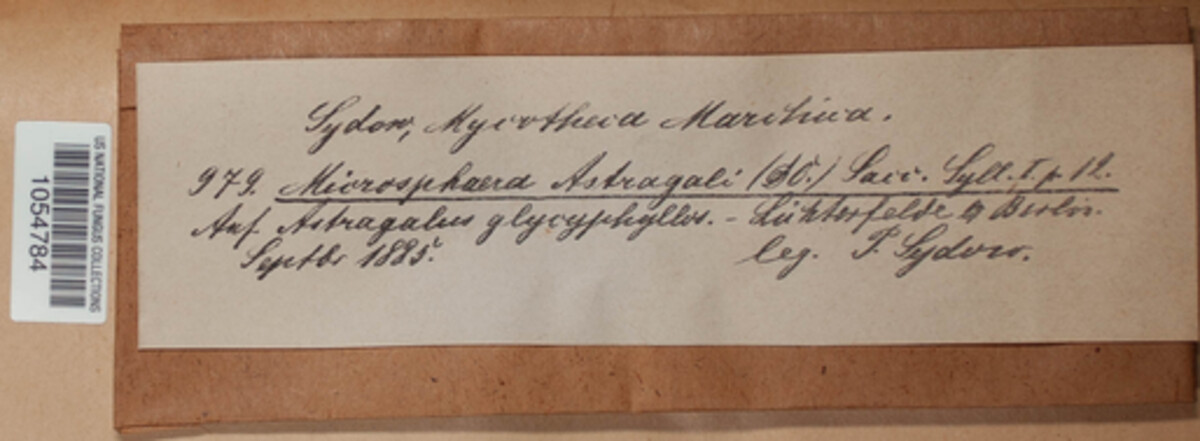 Sydow, Mycotheca Marchica.
979. Microsphaera Astragali (DC.) Sacc. Syll. I. p. 12.
Auf Astragalus glycyphyllos. - Lichterfelde b Berlin.
Septbr 1885. leg. P. Sydow.
US NATIONAL FUNGUS COLLECTIONS
1054784